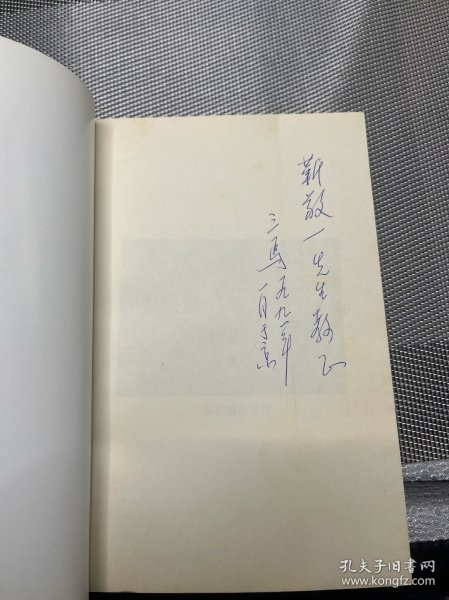 靳敬一先生教正
三马
九一年
一月于京
孔夫子旧书网
www.kongfz.com